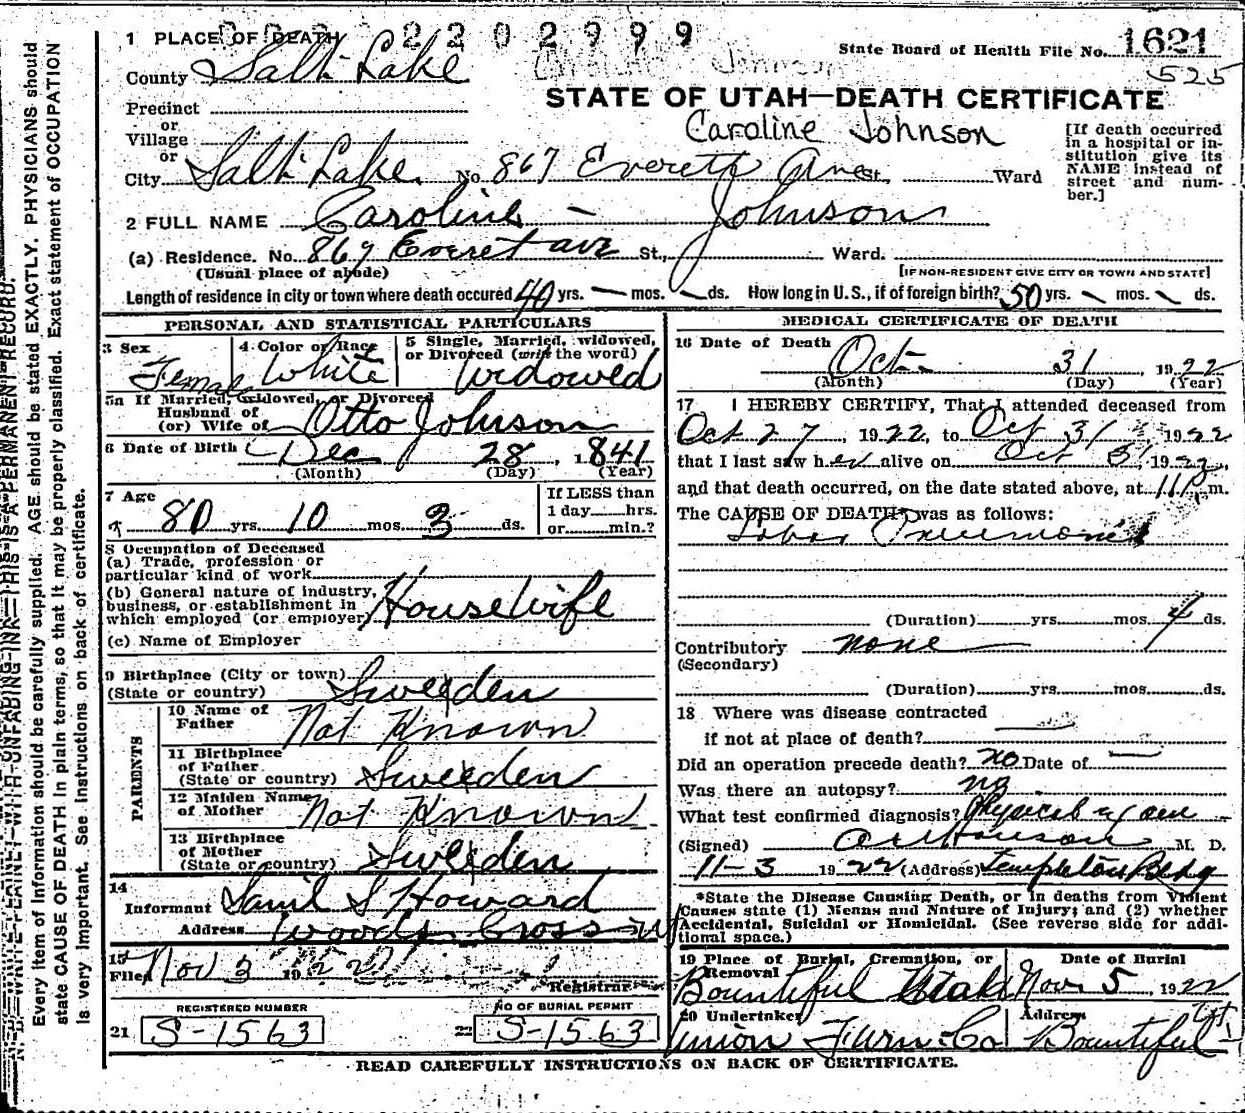 2202999
1 PLACE OF DEATH
State Board of Health File No. 1621
525
County Salt Lake
STATE OF UTAH—DEATH CERTIFICATE
Precinct
or
Village
or
Caroline Johnson
[If death occurred in a hospital or institution give its NAME instead of street and number.]
City Salt Lake. No. 867 Everett Ave St., Ward
2 FULL NAME Caroline – Johnson
(a) Residence. No. 867 Everet ave St., Ward.
(Usual place of abode)
[IF NON-RESIDENT GIVE CITY OR TOWN AND STATE]
Length of residence in city or town where death occured 40 yrs. — mos. — ds. How long in U.S., if of foreign birth? 50 yrs. — mos. — ds.
PERSONAL AND STATISTICAL PARTICULARS
3 Sex Female
4 Color or Race White
5 Single, Married, widowed, or Divorced (write the word) Widowed
5a If Married, Widowed, or Divorced
Husband of
(or) Wife of Otto Johnson
6 Date of Birth Dec 28, 1841
(Month) (Day) (Year)
7 Age 80 yrs. 10 mos. 3 ds.
If LESS than
1 day hrs.
or min.?
8 Occupation of Deceased
(a) Trade, profession or
particular kind of work
(b) General nature of industry,
business, or establishment in
which employed (or employer) Housewife
(c) Name of Employer
9 Birthplace (City or town)
(State or country) Sweeden
PARENTS
10 Name of Father Not Known
11 Birthplace of Father
(State or country) Sweeden
12 Maiden Name of Mother Not Known
13 Birthplace of Mother
(State or country) Sweeden
14
Informant Saml S Howard
Address Woods Cross
15
Filed Nov 3 1922
Registrar
REGISTERED NUMBER
21 S-1563
NO OF BURIAL PERMIT
22 S-1563
MEDICAL CERTIFICATE OF DEATH
16 Date of Death
Oct. 31, 1922
(Month) (Day) (Year)
17 I HEREBY CERTIFY, That I attended deceased from
Oct 27, 1922, to Oct 31 1922
that I last saw her alive on Oct 31 1922,
and that death occurred, on the date stated above, at 11 P m.
The CAUSE OF DEATH* was as follows:
Lobar Pneumonia
(Duration) yrs. mos. 4 ds.
Contributory none
(Secondary)
(Duration) yrs. mos. ds.
18 Where was disease contracted
if not at place of death?
Did an operation precede death? no Date of —
Was there an autopsy? no
What test confirmed diagnosis? Physical exam
(Signed) M. D.
11-3 1922 (Address) Templeton Bldg
*State the Disease Causing Death, or in deaths from Violent
Causes state (1) Menns and Nature of Injury; and (2) whether
Accidental, Suicidal or Homicidal. (See reverse side for addi-
tional space.)
19 Place of Burial, Cremation, or Removal
Bountiful Utah
Date of Burial
Nov. 5, 1922
20 Undertaker
Union Furn. Co
Address
Bountiful Ut
READ CAREFULLY INSTRUCTIONS ON BACK OF CERTIFICATE.
Every item of information should be carefully supplied. AGE should be stated EXACTLY. PHYSICIANS should
state CAUSE OF DEATH in plain terms, so that it may be properly classified. Exact statement of OCCUPATION
is very important. See instructions on back of certificate.